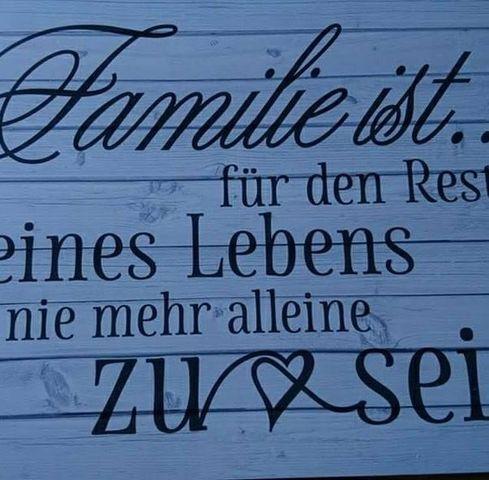 Familie ist..
für den Rest
eines Lebens
nie mehr alleine
zu sei